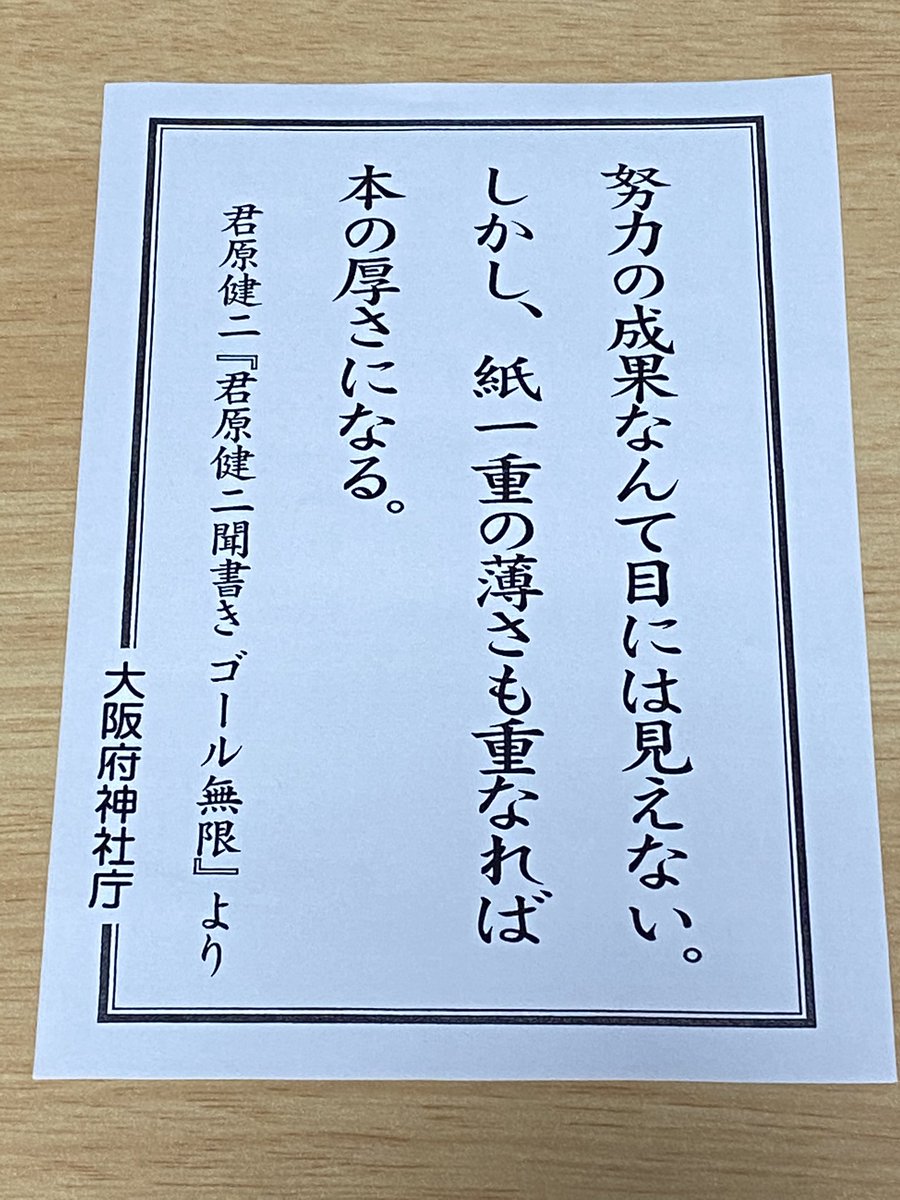 努力の成果なんて目には見えない。
しかし、紙一重の薄さも重なれば
本の厚さになる。
君原健二『君原健二聞書き ゴール無限』より
大阪府神社庁